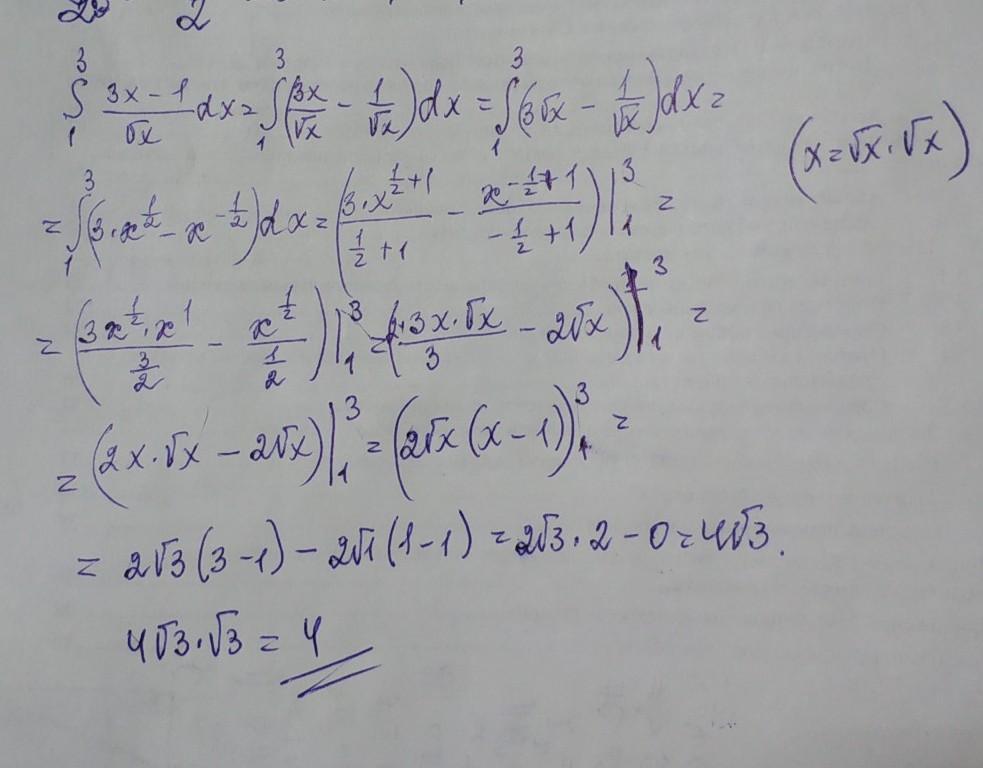 2
∫₁³ (3x − 1)/√x dx = ∫₁³ (3x/√x − 1/√x) dx = ∫₁³ (3√x − 1/√x) dx =
(x = √x · √x)
= ∫₁³ (3 · x^(1/2) − x^(−1/2)) dx = (3 · x^(1/2 + 1)/(1/2 + 1) − x^(−1/2 + 1)/(−1/2 + 1)) |₁³ =
= (3x^(1/2) · x^1/(3/2) − x^(1/2)/(1/2)) |₁³ = (2 · 3x · √x/3 − 2√x) |₁³ =
= (2x · √x − 2√x) |₁³ = (2√x (x − 1)) |₁³ =
= 2√3 (3 − 1) − 2√1 (1 − 1) = 2√3 · 2 − 0 = 4√3.
4√3 · √3 = 4